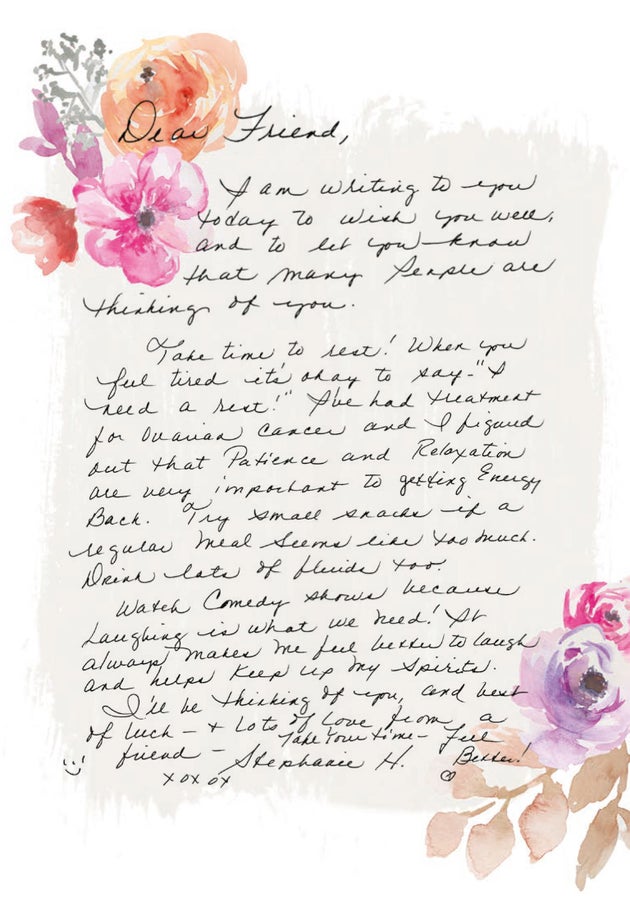 Dear Friend,
I am writing to you
today to wish you well,
and to let you know
that many People are
thinking of you.
Take time to rest! When you
feel tired it's okay to say - "I
need a rest!" I've had treatment
for Ovarian Cancer and I figured
out that Patience and Relaxation
are very important to getting Energy
Back. Try small snacks if a
regular Meal Seems like too much.
Drink lots of fluids too!
Watch Comedy shows because
Laughing is what we need! It
always makes me feel better to laugh
and helps Keep up my Spirits.
I'll be thinking of you, and best
of luck - + Lots of Love from a
friend - Stephanie H.
Take Your time - Feel
Better!
xoxox